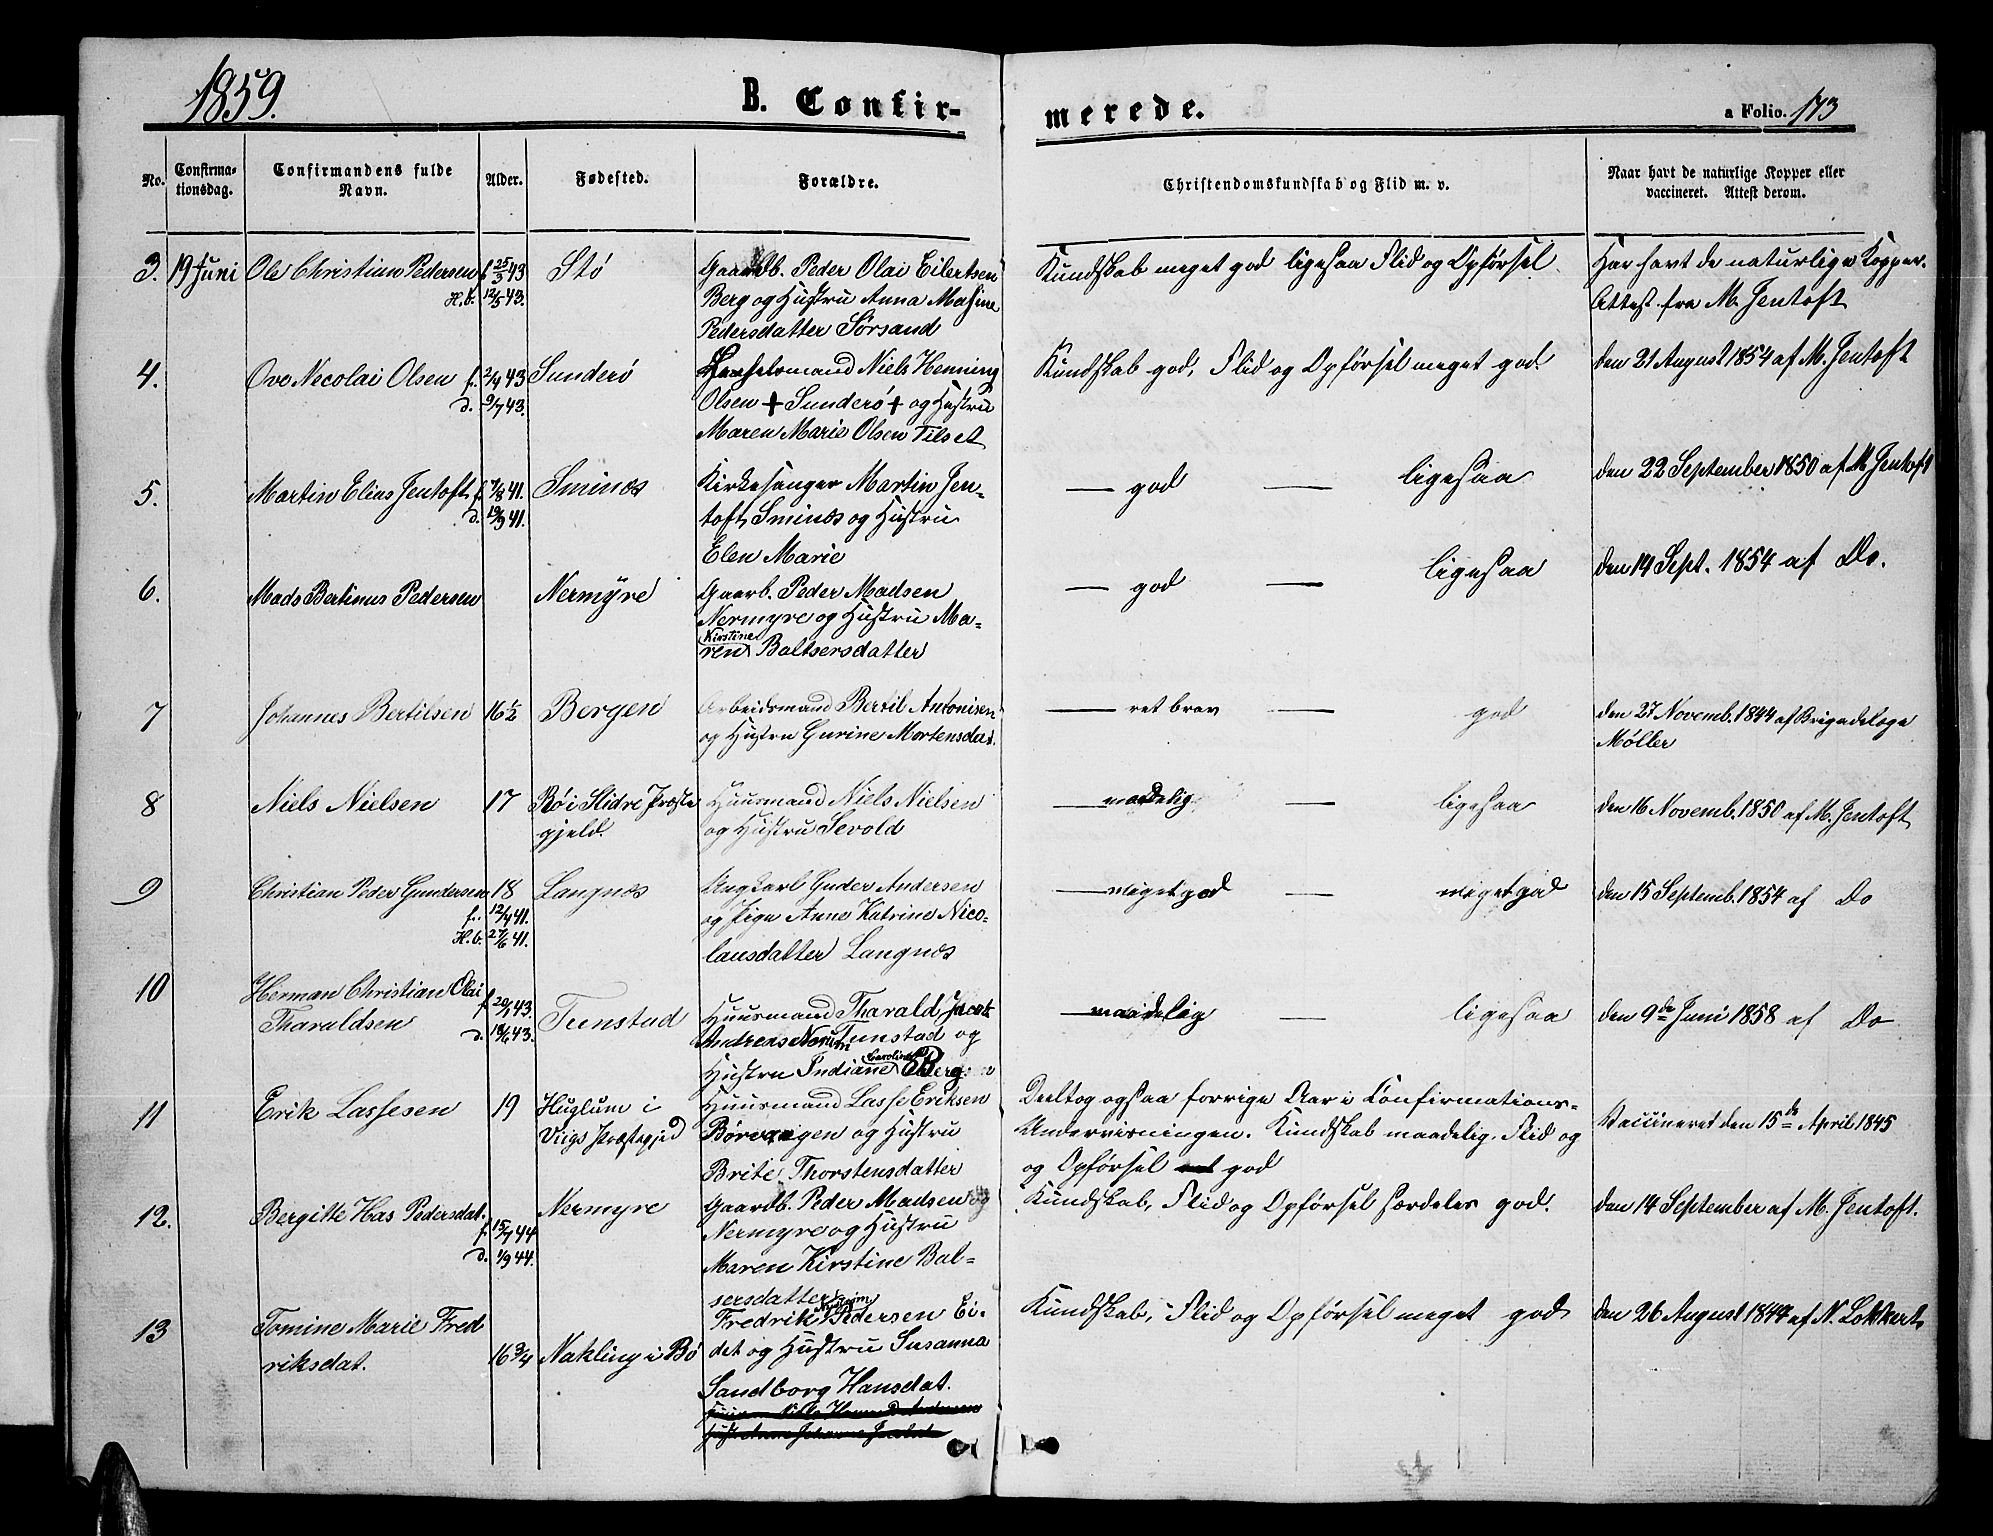 1859.
B. Confir-
merede.
a Folio. 173
No.
Confirma-
tionsdag.
Confirmandens fulde
Navn.
Alder.
Fødested.
Forældre.
Christendomskundskab og Flid m. v.
Naar havt de naturlige Kopper eller
vaccineret. Attest derom.
3. 19 Juni Ole Christian Pedersen f. 25/3 43 Stø Gaardb. Peder Olai Eilertsen Kundskab meget god ligesaa Flid og Opførsel. Har havt de naturlige Kopper.
H.b. 12/5 43. Berg og Hustru Anna Masine Attest fra M. Jentoft
Pedersdatter Sørsand
4. Ove Necolai Olsen f. 2/4 43 Sunderø mand Niels Henning Kundskab god, Flid og Opførsel meget god. den 21 August 1854 af M. Jentoft
d. 9/7 43. Olsen + Sunderø + og Hustru
Maren Marie Olsen Tilset
5. Martin Elias Jentoft f. 7/8 41. Sminæs Kirkesanger Martin Jen- — god — ligesaa den 22 September 1850 af M. Jentoft
d. 19/9 41. toft Sminæs og Hustru
Elen Marie
6. Mads Bertinus Pedersen Nermyre Gaarb. Peder Madsen — god — ligesaa den 14 Sept. 1854 af Do.
Nermyre og Hustru Ma-
Kirstine
ren Baltsersdatter
7 Johannes Bertilsen 16½ Bergen Arbeidsmand Bertil Antonisen — ret brav — god den 27 Novemb. 1844 af Brigadelæge
og Hustru Gurine Mortensdat. Møller
8 Niels Nielsen 17 Bø i Slidre Præste Huusmand Niels Nielsen — maadelig — ligesaa den 16 Novemb. 1850 af M. Jentoft
gjeld. og Hustru Sevold
9 Christian Peder Gundersen 18 Langnæs Ungkarl Guder Andersen — meget god — meget god den 15 Septemb. 1854 af Do
f. 12/4 41. og Pige Anne Katrine Nico-
H.b. 27/6 41. lausdatter Langnæs
10 Herman Christian Olai
Tharaldsen f. 20/1 43. Tunstad Huusmand Tharald Jacob — maadelig — ligesaa den 9de Juni 1858 af Do
d. 18/6 43. Andreas Norum Tunstad og
Caroline
Hustru Indiane Berg
11 Erik Lassesen 19 Huglum i Huusmand Lasse Eriksen Deeltog ogsaa forrige Aar i Confirmations- Vaccineret den 15de April 1845
Viigs Præstegjeld Børøgen og Hustru Undervisningen. Kundskab maadelig. Flid og
Brite Thorstensdatter og Opførsel god
12. Bergitte Has Pedersdat. Nermyre Gaardb. Peder Madsen og Kundskab, Flid og Opførsel særdeles god. den 14 September af M. Jentoft.
f. 15/7 44 Nermyre og Hustru
d. 1/9 44. Maren Kirstine Bal-
sersdatter
13 Tomine Marie Fred Fredrik Pedersen Ei- Kundskab, Flid og Opførsel meget god den 26 August 1844 af N. Lokkert
riksdat. 16¾ Nakling i Bø det og Hustru Susanna
Sandborg Hansdat.